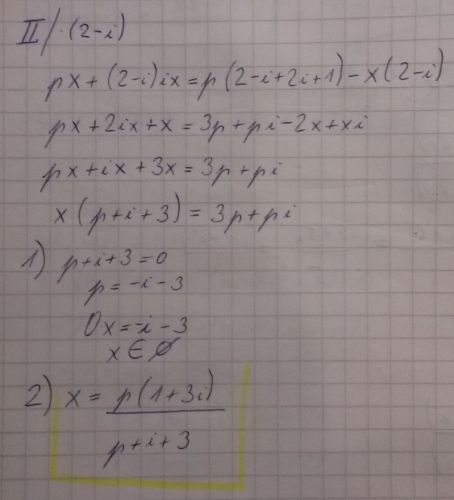 II / · (2-i)
px + (2-i)ix = p(2-i+2i+1) - x(2-i)
px + 2ix + x = 3p + pi - 2x + xi
px + ix + 3x = 3p + pi
x(p+i+3) = 3p + pi
1) p+i+3=0
p = -i-3
0x = -i-3
x ∈ ∅
2) x = p(1+3i)
p+i+3